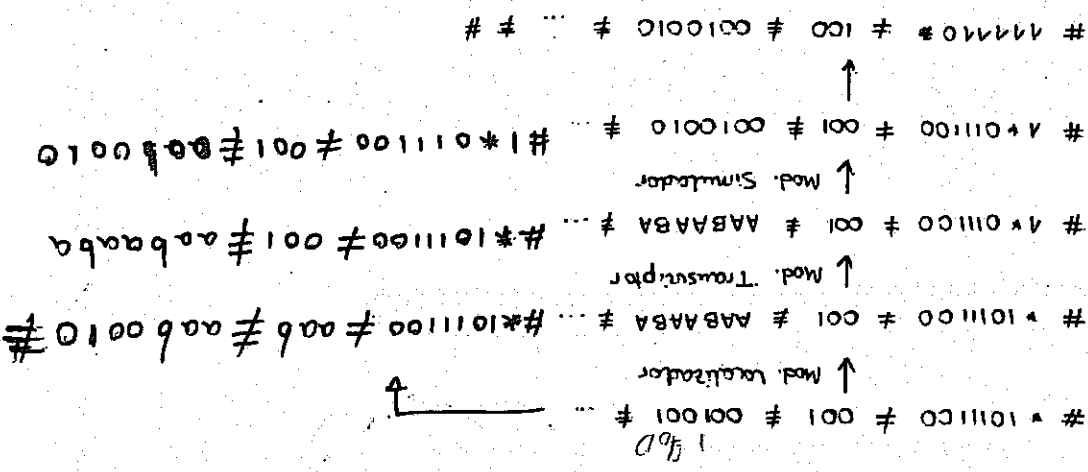 # * 1011100 ≠ 001 ≠ 001001 ≠ ...
Mod. Localizador
# * 1011100 ≠ 001 ≠ AABAABA ≠ ... #*1011100 ≠ aab ≠ aab0010 ≠
Mod. Transcriptor
# 1*011100 ≠ 001 ≠ AABAABA ≠ ... #*1011100 ≠ 001 ≠ aabaaba
Mod. Simulador
# 1*011100 ≠ 001 ≠ 0010010 ≠ ... #1*011100 ≠ 001 ≠ aab0010
# 111110* ≠ 100 ≠ 0010010 ≠ ... ≠ #